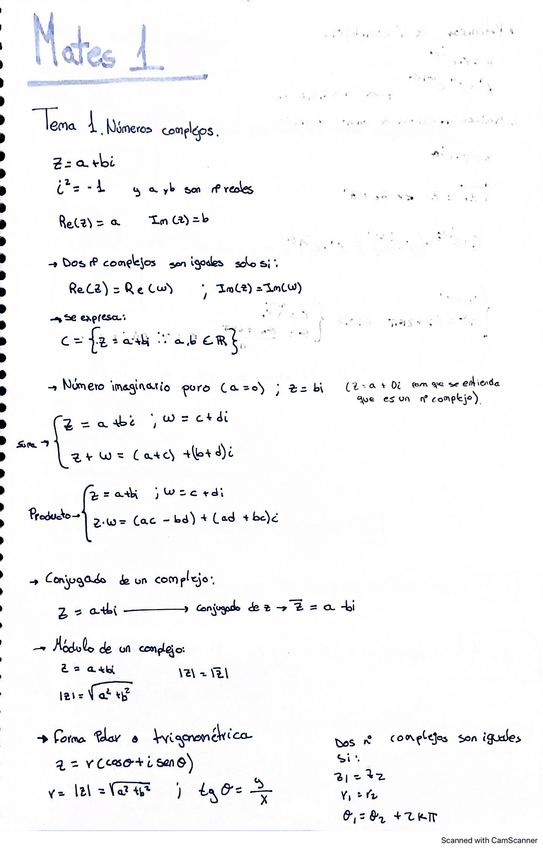 Mates 1
Tema 1. Números complejos.
z = a + bi
i² = -1 y a y b son nº reales
Re(z) = a Im(z) = b
→ Dos nº complejos son iguales solo si:
Re(z) = Re(w) ; Im(z) = Im(w)
→ se expresa:
C = {z = a + bi : a, b ∈ ℝ}
→ Número imaginario puro (a=0) ; z = bi (z = a + 0i para que se entienda
que es un nº complejo).
Suma → { z = a + bi ; w = c + di
z + w = (a+c) + (b+d)i
Producto → { z = a + bi ; w = c + di
z·w = (ac - bd) + (ad + bc)i
→ Conjugado de un complejo:
z = a + bi ⟶ conjugado de z → z̅ = a - bi
→ Módulo de un complejo:
z = a + bi |z| = |z̅|
|z| = √(a² + b²)
→ Forma Polar o trigonométrica
z = r(cosθ + i senθ)
r = |z| = √(a² + b²) ; tg θ = y/x
Dos nº complejos son iguales
si:
z₁ = z₂
r₁ = r₂
θ₁ = θ₂ + 2kπ
Scanned with CamScanner